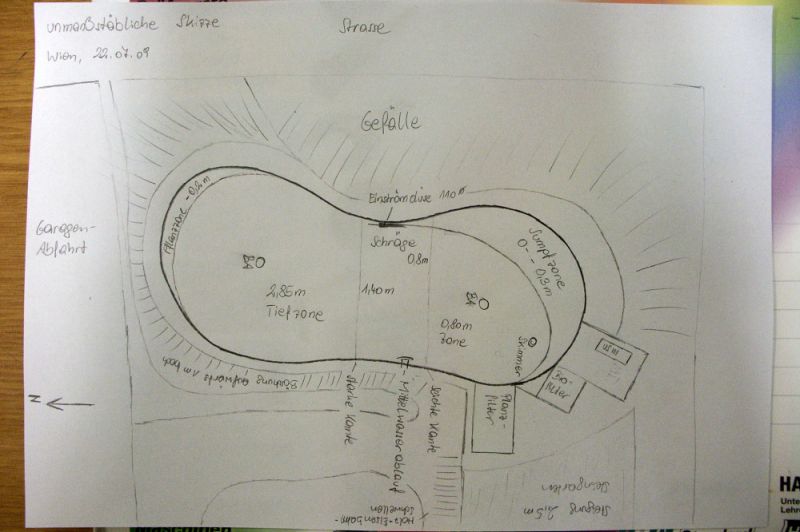 unmaßstäbliche Skizze
Strasse
Wien, 22.07.09
Gefälle
Einströmdüse 110ø
Pflanzzone -0,2m
Garagen-
Abfahrt
Schräge
0,8m
Sumpfzone
0 -- 0,3m
BA
2,85m
Tiefzone
1,40m
BA
0,80m
zone
Skimmer
Bio-
filter
Pflanz-
filter
Böschung aufwärts 1m hoch
N
starke Kante
Mittelwasserablauf
leichte Kante
Holz-Eisenbahn-
schwellen
Steingarten
Steigung 2,5m
HA
Unte
Lehr